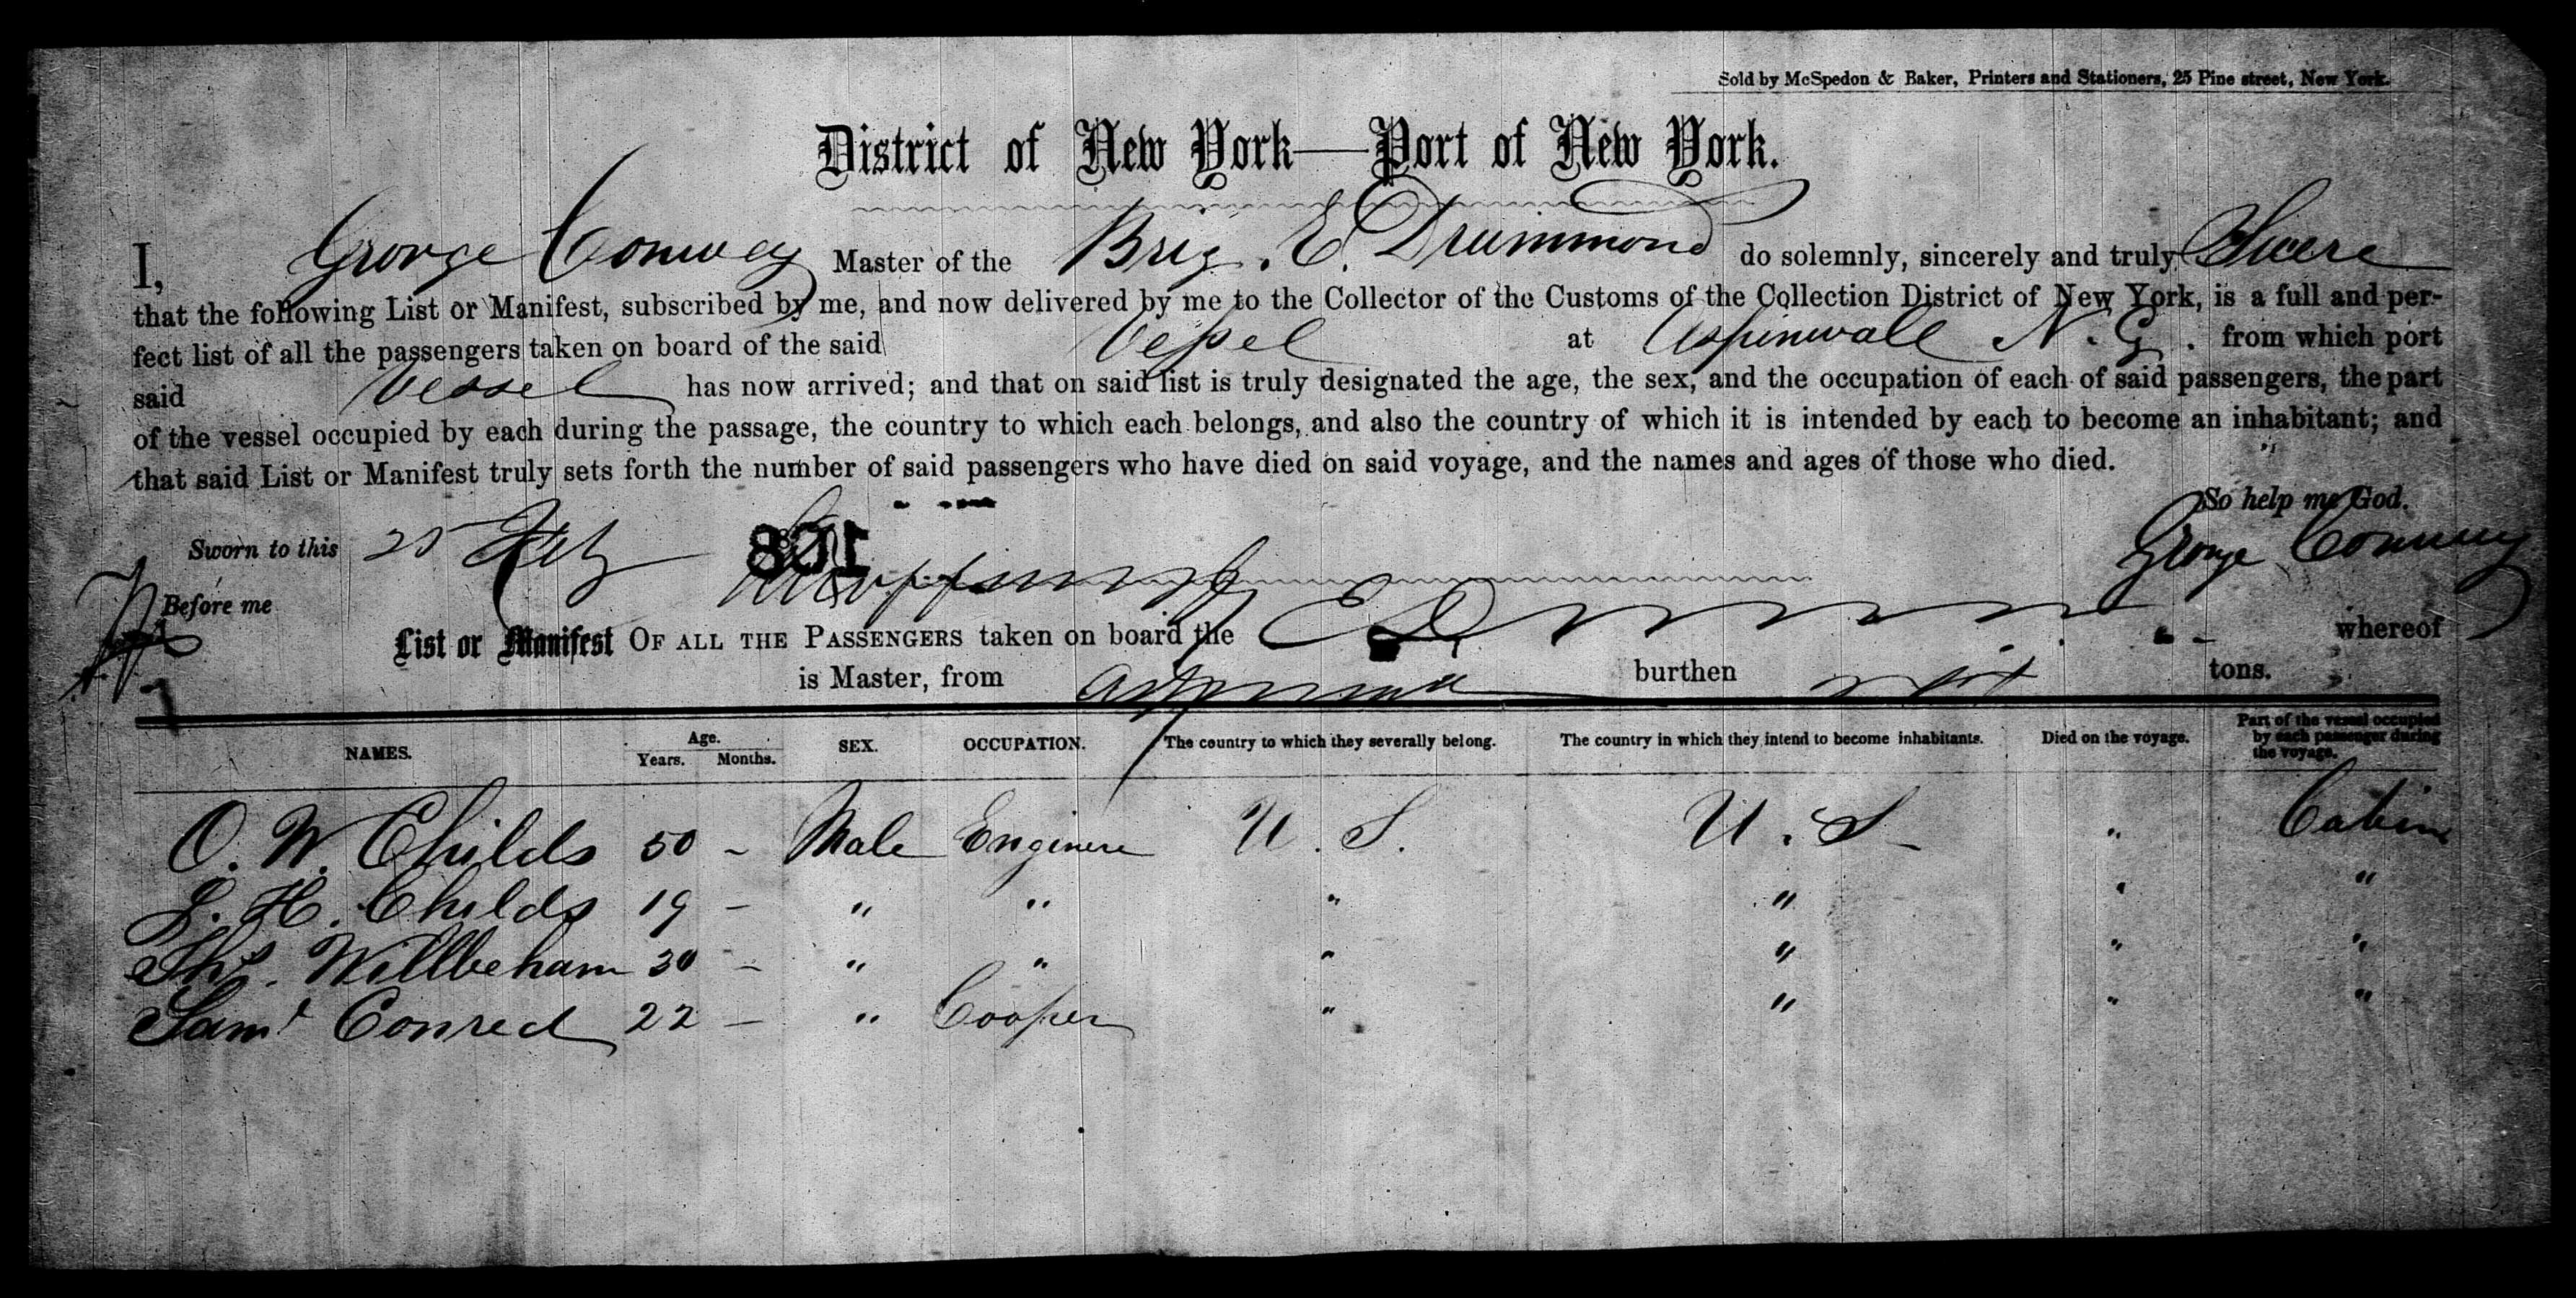 Sold by McSpedon & Baker, Printers and Stationers, 25 Pine street, New York.
District of New York—Port of New York.
I, George Conway Master of the Brig. E. Drummond do solemnly, sincerely and truly Swere
that the following List or Manifest, subscribed by me, and now delivered by me to the Collector of the Customs of the Collection District of New York, is a full and per-
fect list of all the passengers taken on board of the said Vessel at Aspinwall N. G. from which port
said Vessel has now arrived; and that on said list is truly designated the age, the sex, and the occupation of each of said passengers, the part
of the vessel occupied by each during the passage, the country to which each belongs, and also the country of which it is intended by each to become an inhabitant; and
that said List or Manifest truly sets forth the number of said passengers who have died on said voyage, and the names and ages of those who died.
So help me God.
Sworn to this 25 108 George Conway
Before me
List or Manifest OF ALL THE PASSENGERS taken on board the whereof
is Master, from burthen tons.
NAMES. Age. Years. Months. SEX. OCCUPATION. The country to which they severally belong. The country in which they intend to become inhabitants. Died on the voyage. Part of the vessel occupied by each passenger during the voyage.
O. W. Childs 50 - Male Enginere U. S. U. S. " Cabin
H. Childs 19 - " " " " " "
Thos. Willbeham 30 - " " " " " "
Saml Conred 22 - " Cooper " " " "